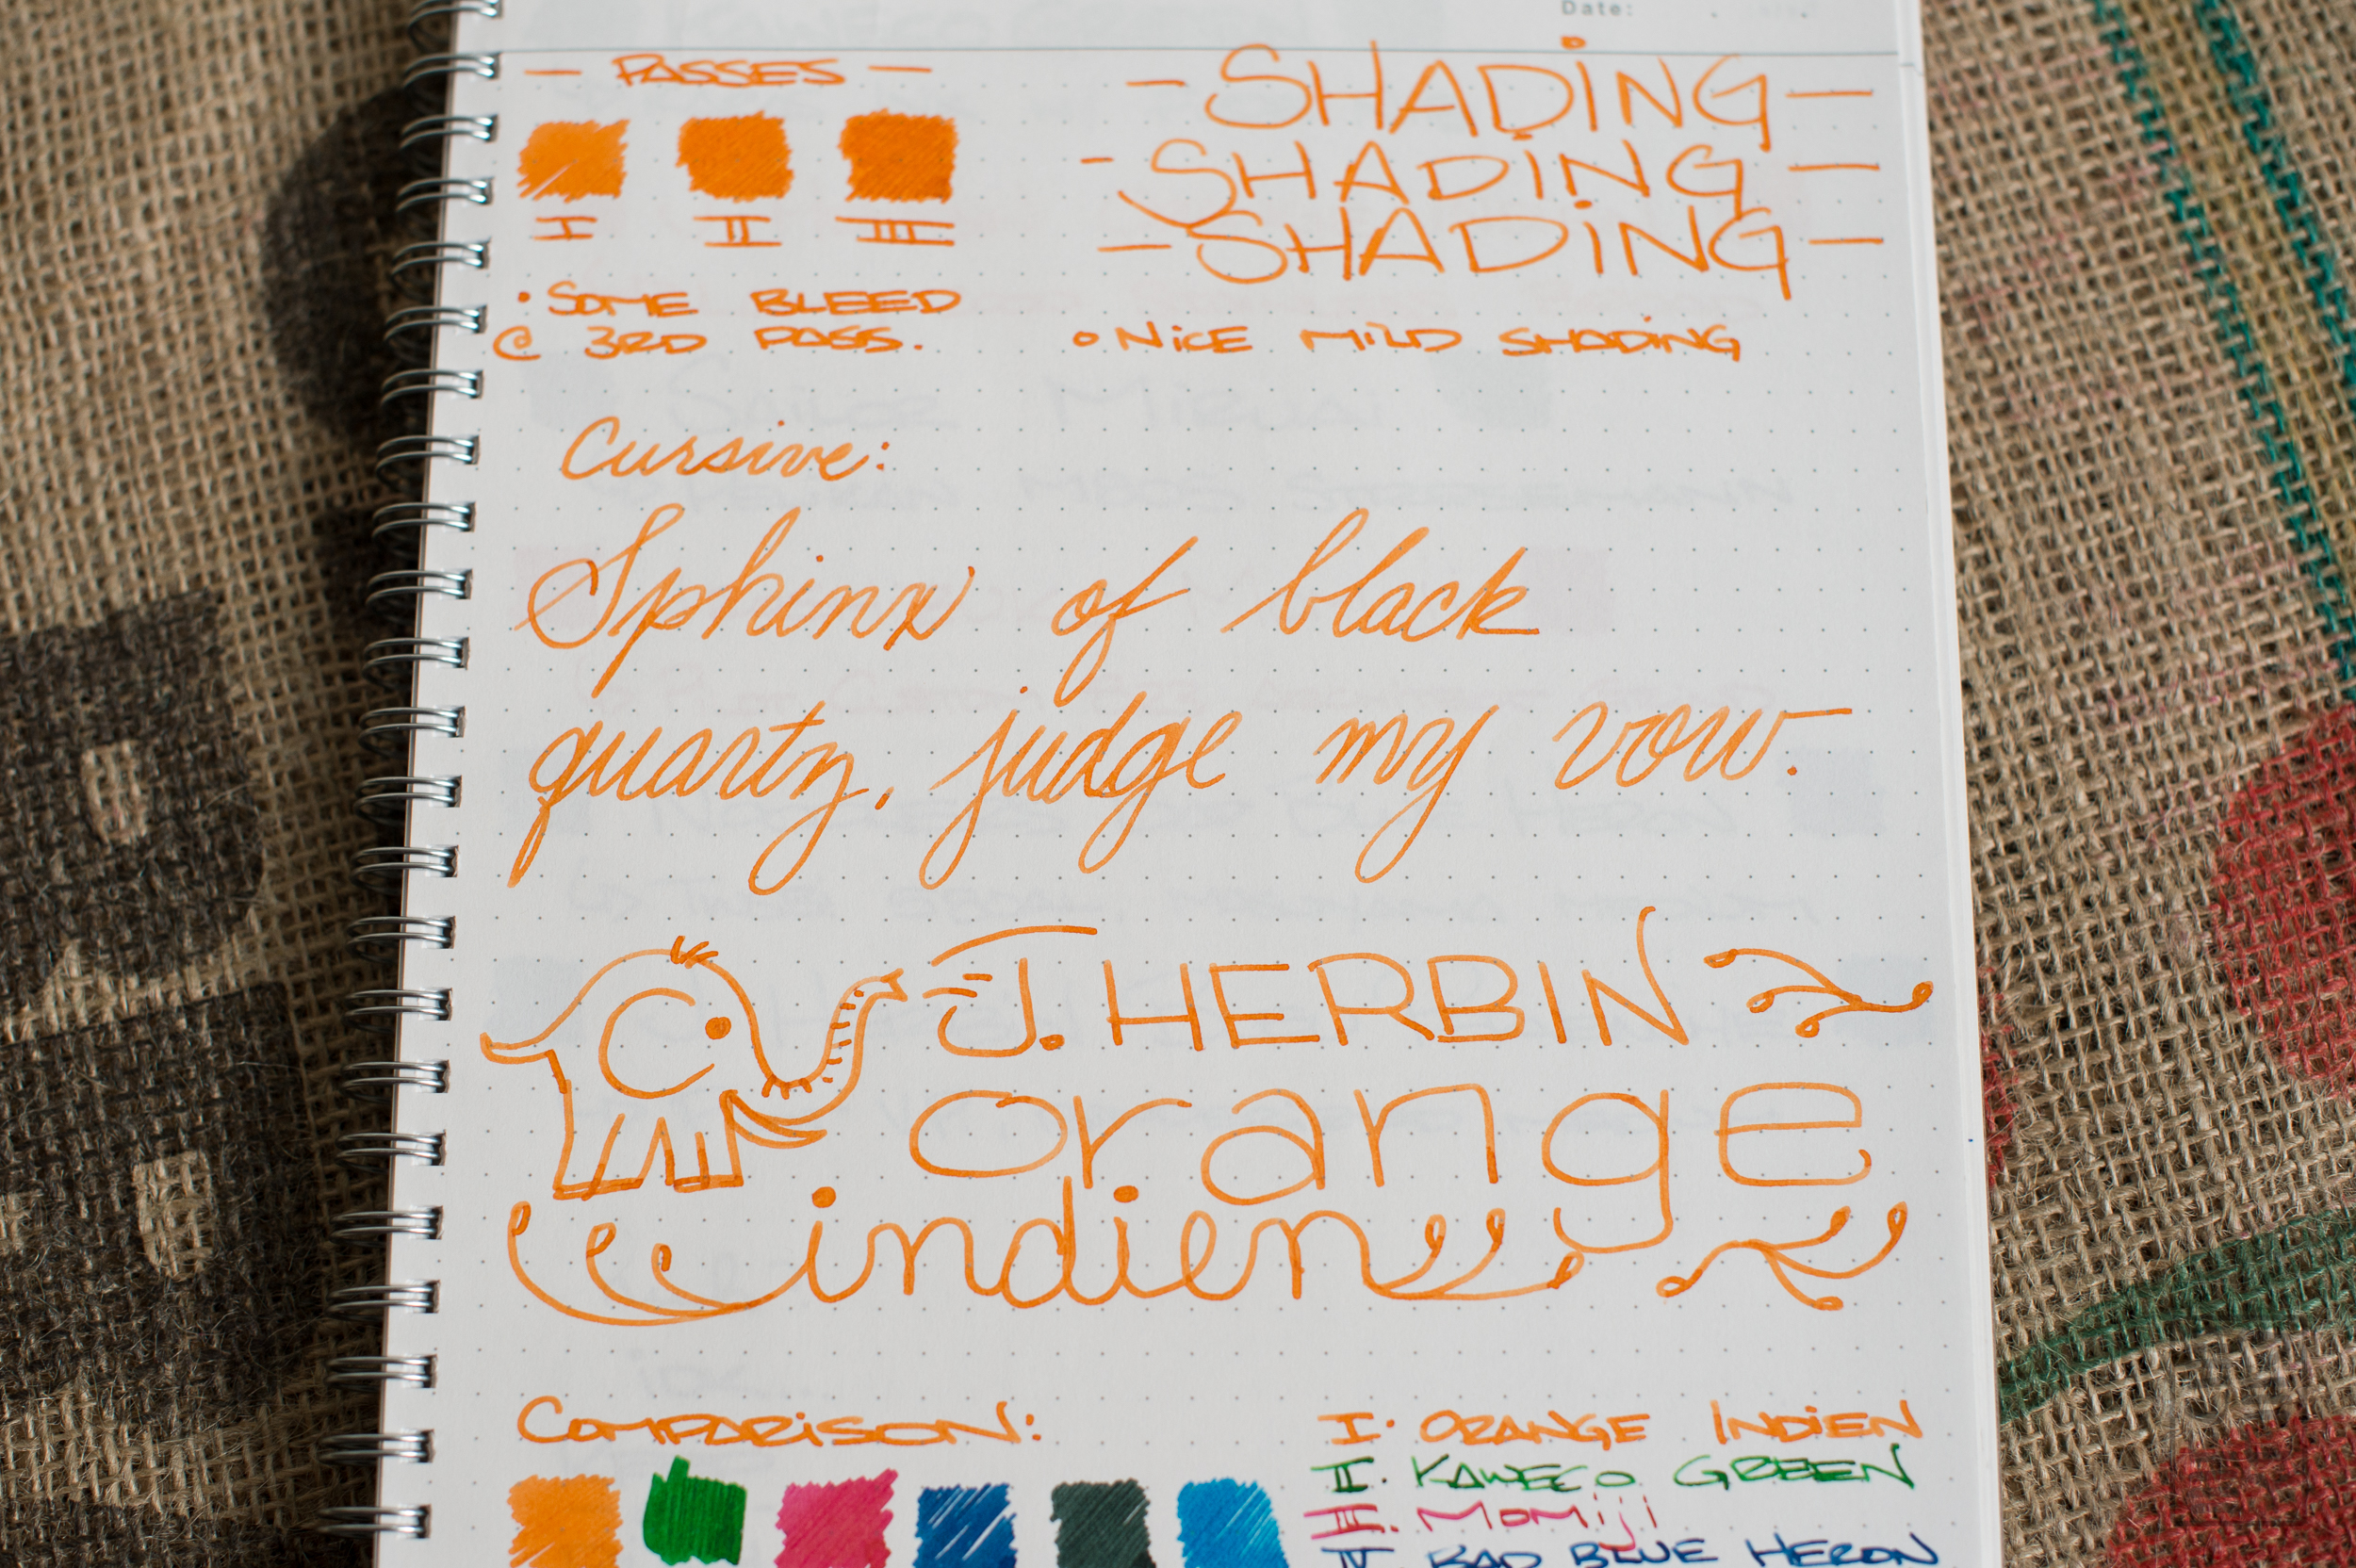 Date:
— PASSES —
I II III
• SOME BLEED
@ 3RD PASS.
— SHADING —
- SHADING —
— SHADING —
• NICE MILD SHADING
Cursive:
Sphinx of black
quartz, judge my vow.
J. HERBIN
orange
indien
COMPARISON:
I. ORANGE INDIEN
II. KAWECO GREEN
III. MOMIJI
IV BAD BLUE HERON